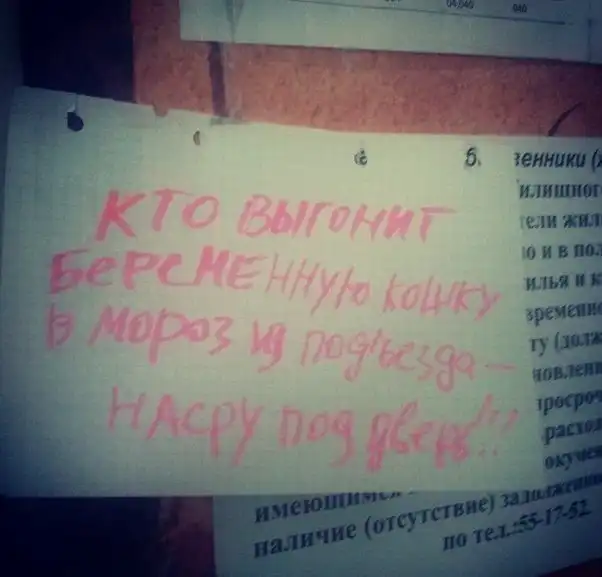 04.040 040
б.
КТО ВЫГОНИТ
БЕРЕМЕННУЮ КОШКУ
В МОРОЗ ИЗ ПОДЪЕЗДА —
НАСРУ ПОД ДВЕРЬ!!!
венники
илищног
тели жил
ю и в по
илья и к
временно
ту (долж
новлени
просроч
расход
окучен
имеющимся
наличие (отсутствие) задолженно
по тел.:55-17-52